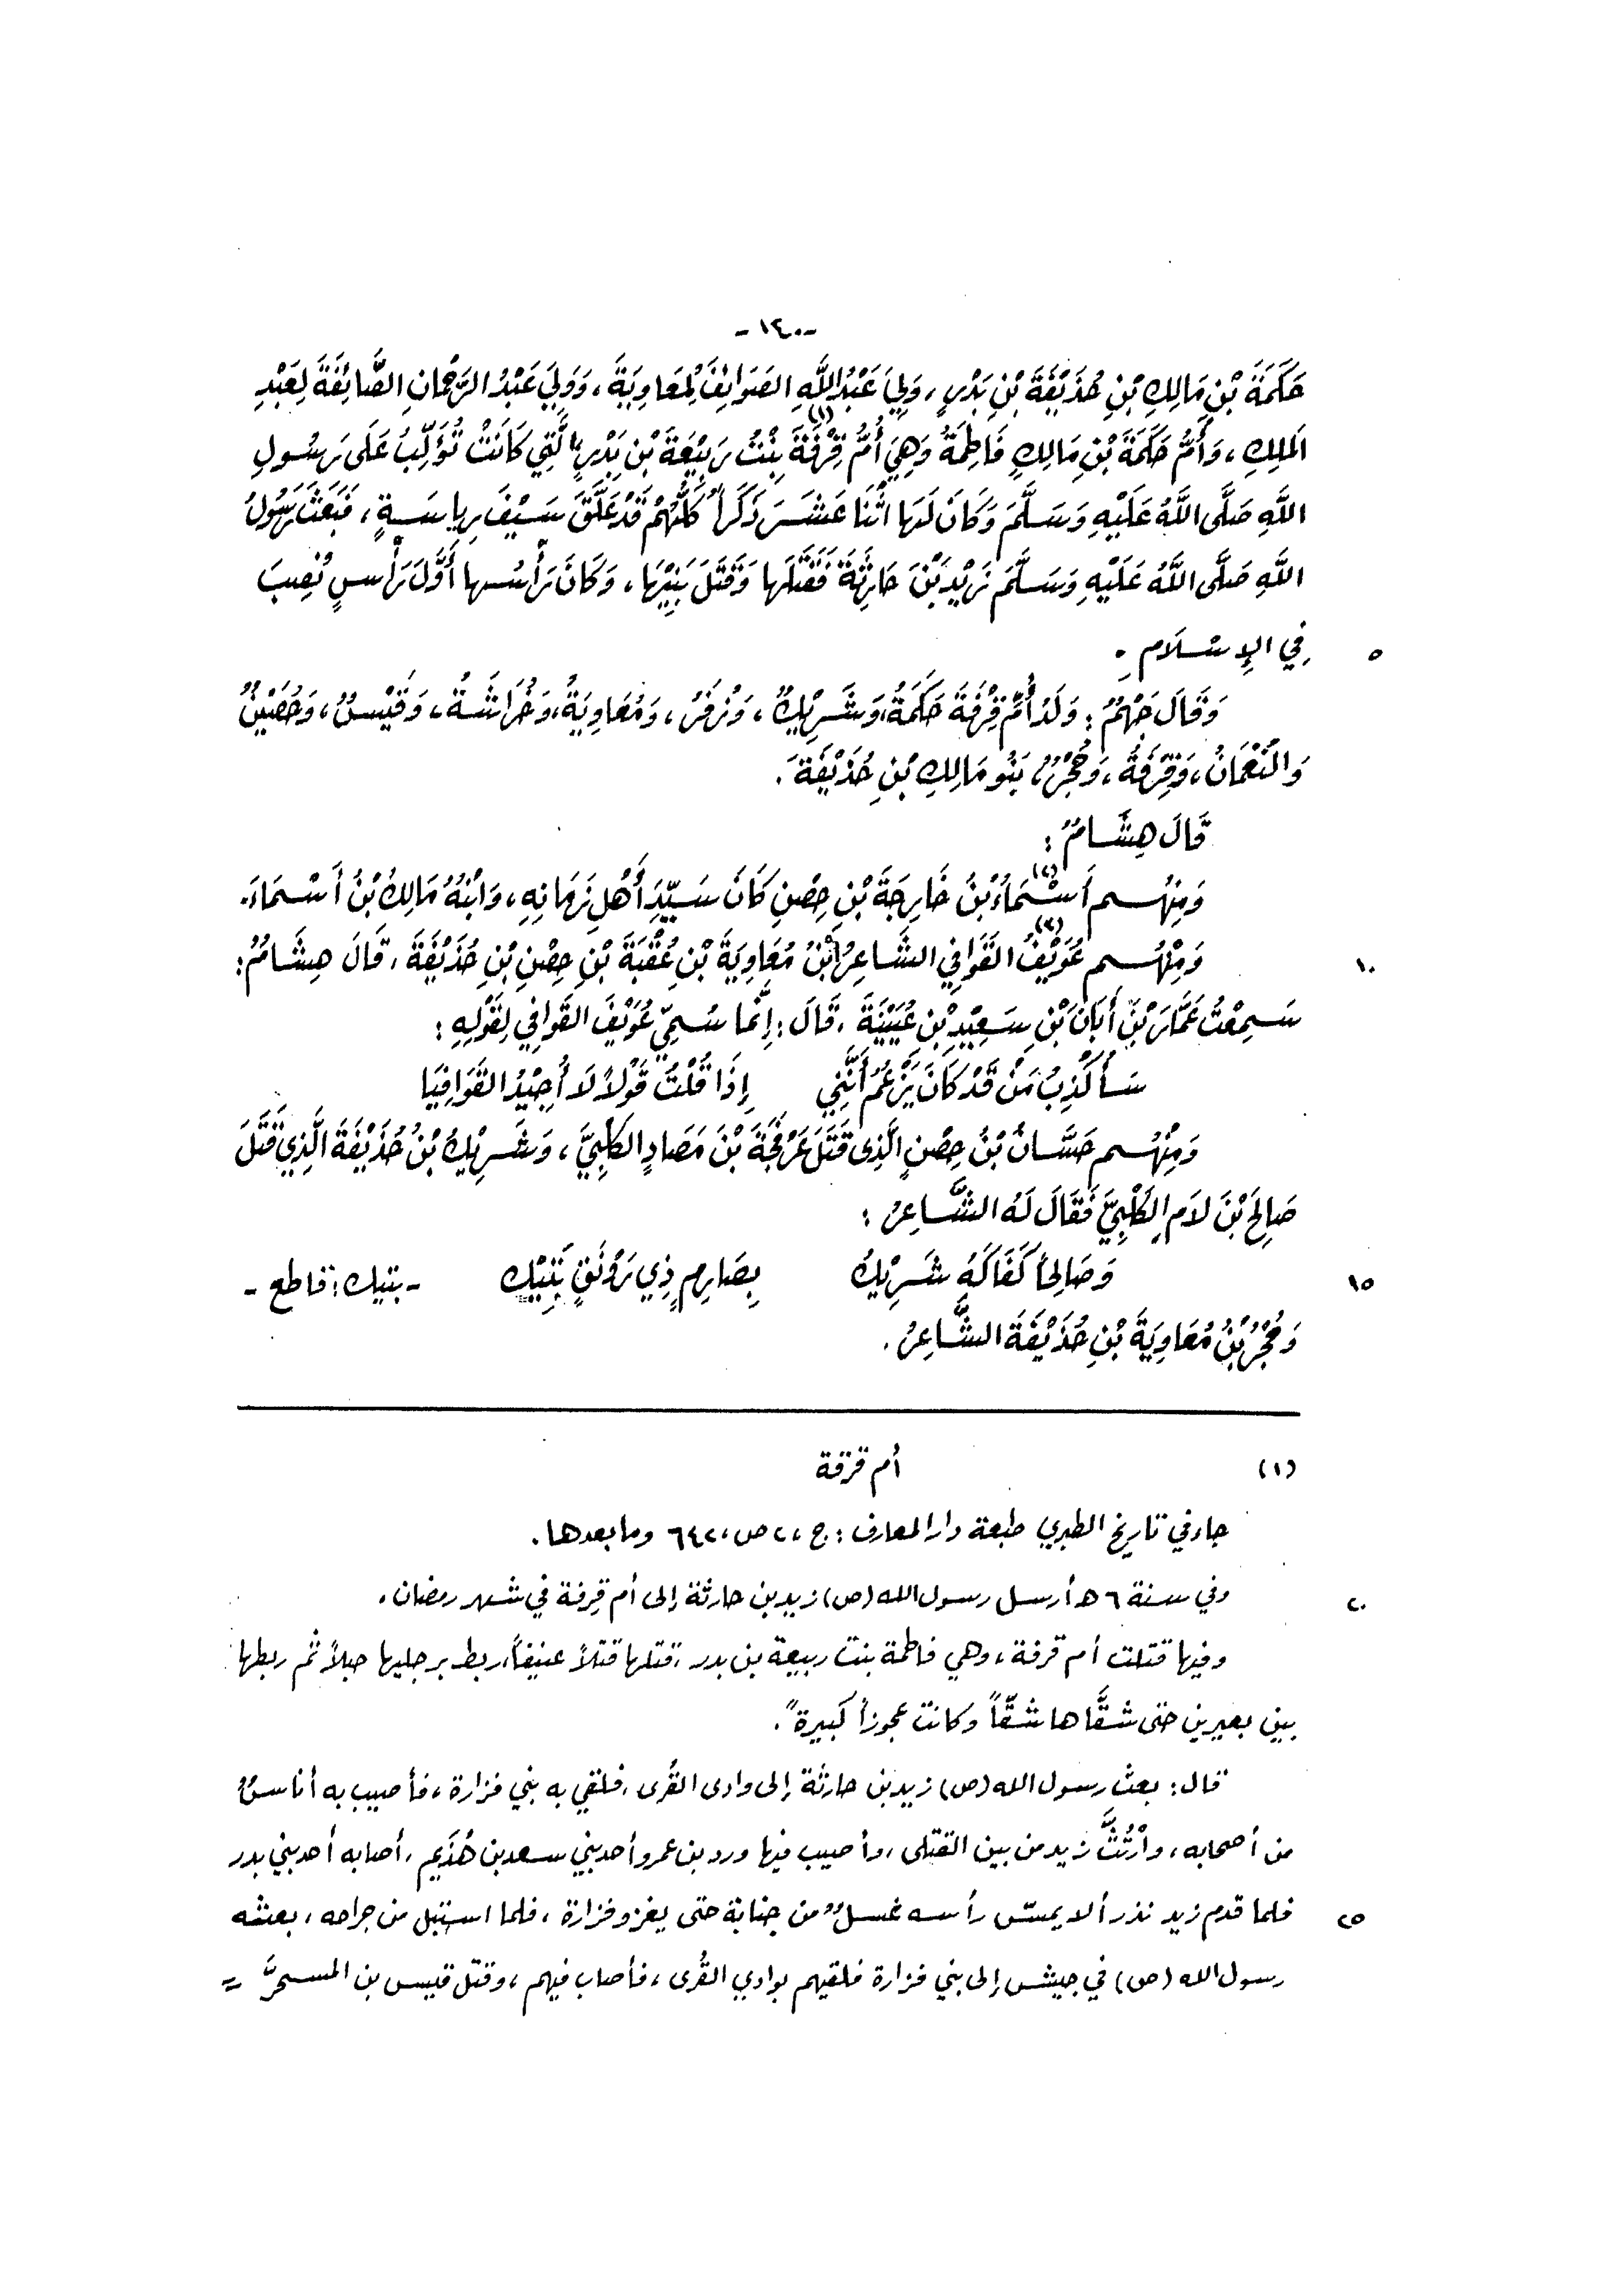 -١٤٠-
حَكَمَةَ بْنِ مَالِكِ بْنِ حُذَيْفَةَ بْنِ بَدْرٍ، وَلِيَ عَبْدُ اللَّهِ الصَوَائِفَ لِمُعَاوِيَةَ، وَوَلِيَ عَبْدُ الرَّحْمَانِ الصَّائِفَةَ لِعَبْدِ
المَلِكِ، وَأُمُّ حَكَمَةَ بْنِ مَالِكٍ فَاطِمَةُ وَهِيَ أُمُّ قِرْفَةَ (١) بِنْتُ رَبِيْعَةَ بْنِ بَدْرٍ الَّتِي كَانَتْ تُؤَلِّبُ عَلَى رَسُولِ
اللَّهِ صَلَّى اللَّهُ عَلَيْهِ وَسَلَّمَ وَكَانَ لَهَا اثْنَا عَشَرَ ذَكَراً كُلُّهُمْ قَدْ عَلَّقَ سَيْفَ رِياسَةٍ، فَبَعَثَ رَسُولُ
اللَّهِ صَلَّى اللَّهُ عَلَيْهِ وَسَلَّمَ زَيْدَ بْنَ حَارِثَةَ فَقَتَلَهَا وَقَتَلَ بَنِيْهَا، وَكَانَ رَأْسُهَا أَوَّلَ رَأْسٍ نُصِبَ
٥ فِي الإِسْلَامِ.
وَقَالَ جَهْمٌ: وَلَدُ أُمِّ قِرْفَةَ حَكَمَةُ، وَشَرِيْكٌ، وَزُفَرُ، وَمُعَاوِيَةُ، وَخُرَاشَةُ، وَقَيْسٌ، وَحُصَيْنٌ
وَالنُّعْمَانُ، وَقِرْفَةُ، وَحُجْرٌ، بَنُو مَالِكِ بْنِ حُذَيْفَةَ.
قَالَ هِشَامٌ:
وَمِنْهُم أَسْمَاءُ (٢) بْنُ خَارِجَةَ بْنِ حِصْنٍ كَانَ سَيِّدَ أَهْلِ زَمَانِهِ، وَابْنُهُ مَالِكُ بْنُ أَسْمَاءَ.
١٠ وَمِنْهُم عُوَيْفُ (٣) القَوَافِي الشَاعِرُ ابْنُ مُعَاوِيَةَ بْنِ عُقْبَةَ بْنِ حِصْنِ بْنِ حُذَيْفَةَ، قَالَ هِشَامٌ:
سَمِعْتُ عَمَّارَ بْنَ أَبَانَ بْنِ سَعِيْدِ بْنِ عُيَيْنَةَ، قَالَ: إِنَّمَا سُمِّيَ عُوَيْفَ القَوَافِي لِقَوْلِهِ:
سَأُكْذِبُ مَنْ قَدْ كَانَ يَزْعُمُ أَنَّنِي إِذَا قُلْتُ قَوْلاً لَا أُجِيْدُ القَوَافِيَا
وَمِنْهُم حَسَّانُ بْنُ حِصْنٍ الَّذِى قَتَلَ عَرْفَجَةَ بْنَ مَصَادٍ الكَلْبِيَّ، وَشَرِيْكُ بْنُ حُذَيْفَةَ الَّذِي قَتَلَ
صَالِحَ بْنَ لَأمٍ الكَلْبِيَّ فَقَالَ لَهُ الشَّاعِرُ:
١٥ وَصَالِحاً كَفَاكَهُ شَرِيْكُ بِصَارِمٍ ذِي رَوْنَقٍ بَتِيْكِ -بتيك: قاطع-
وَحُجْرُ بْنُ مُعَاوِيَةَ بْنِ حُذَيْفَةَ الشَّاعِرُ.
(١) أم قرفة
جاء في تاريخ الطبري طبعة دار المعارف: ج، ٢ ص، ٦٤٢ وما بعدها.
٢٠ وفي سنة ٦ ه‍ أرسل رسول الله (ص) زيد بن حارثة إلى أم قِرفة في شهر رمضان.
وفيها قتلت أم قرفة، وهي فاطمة بنت ربيعة بن بدر، قتلها قتلاً عنيفاً، ربط برجليها حبلاً ثم ربطها
بين بعيرين حتى شقَّاها شقّاً وكانت عجوزاً كبيرةً.
قال: بعث رسول الله (ص) زيد بن حارثة إلى وادى القُرى، فلقي به بني فزارة، فأصيب به أناسٌ
من أصحابه، وارْتُثَّ زيد من بين القتلى، وأصيب فيها ورد بن عمرو أحد بني سعد بن هُذَيم، أصابه أحد بني بدر
٢٥ فلما قدم زيد نذر ألا يمسّ رأسه غسلٌ من جنابة حتى يغزو فزارة، فلما استبل من جراحه، بعثه
رسول الله (ص) في جيش إلى بني فزارة فلقيهم بوادي القُرى، فأصاب فيهم، وقتل قيس بن المسحرَّ =